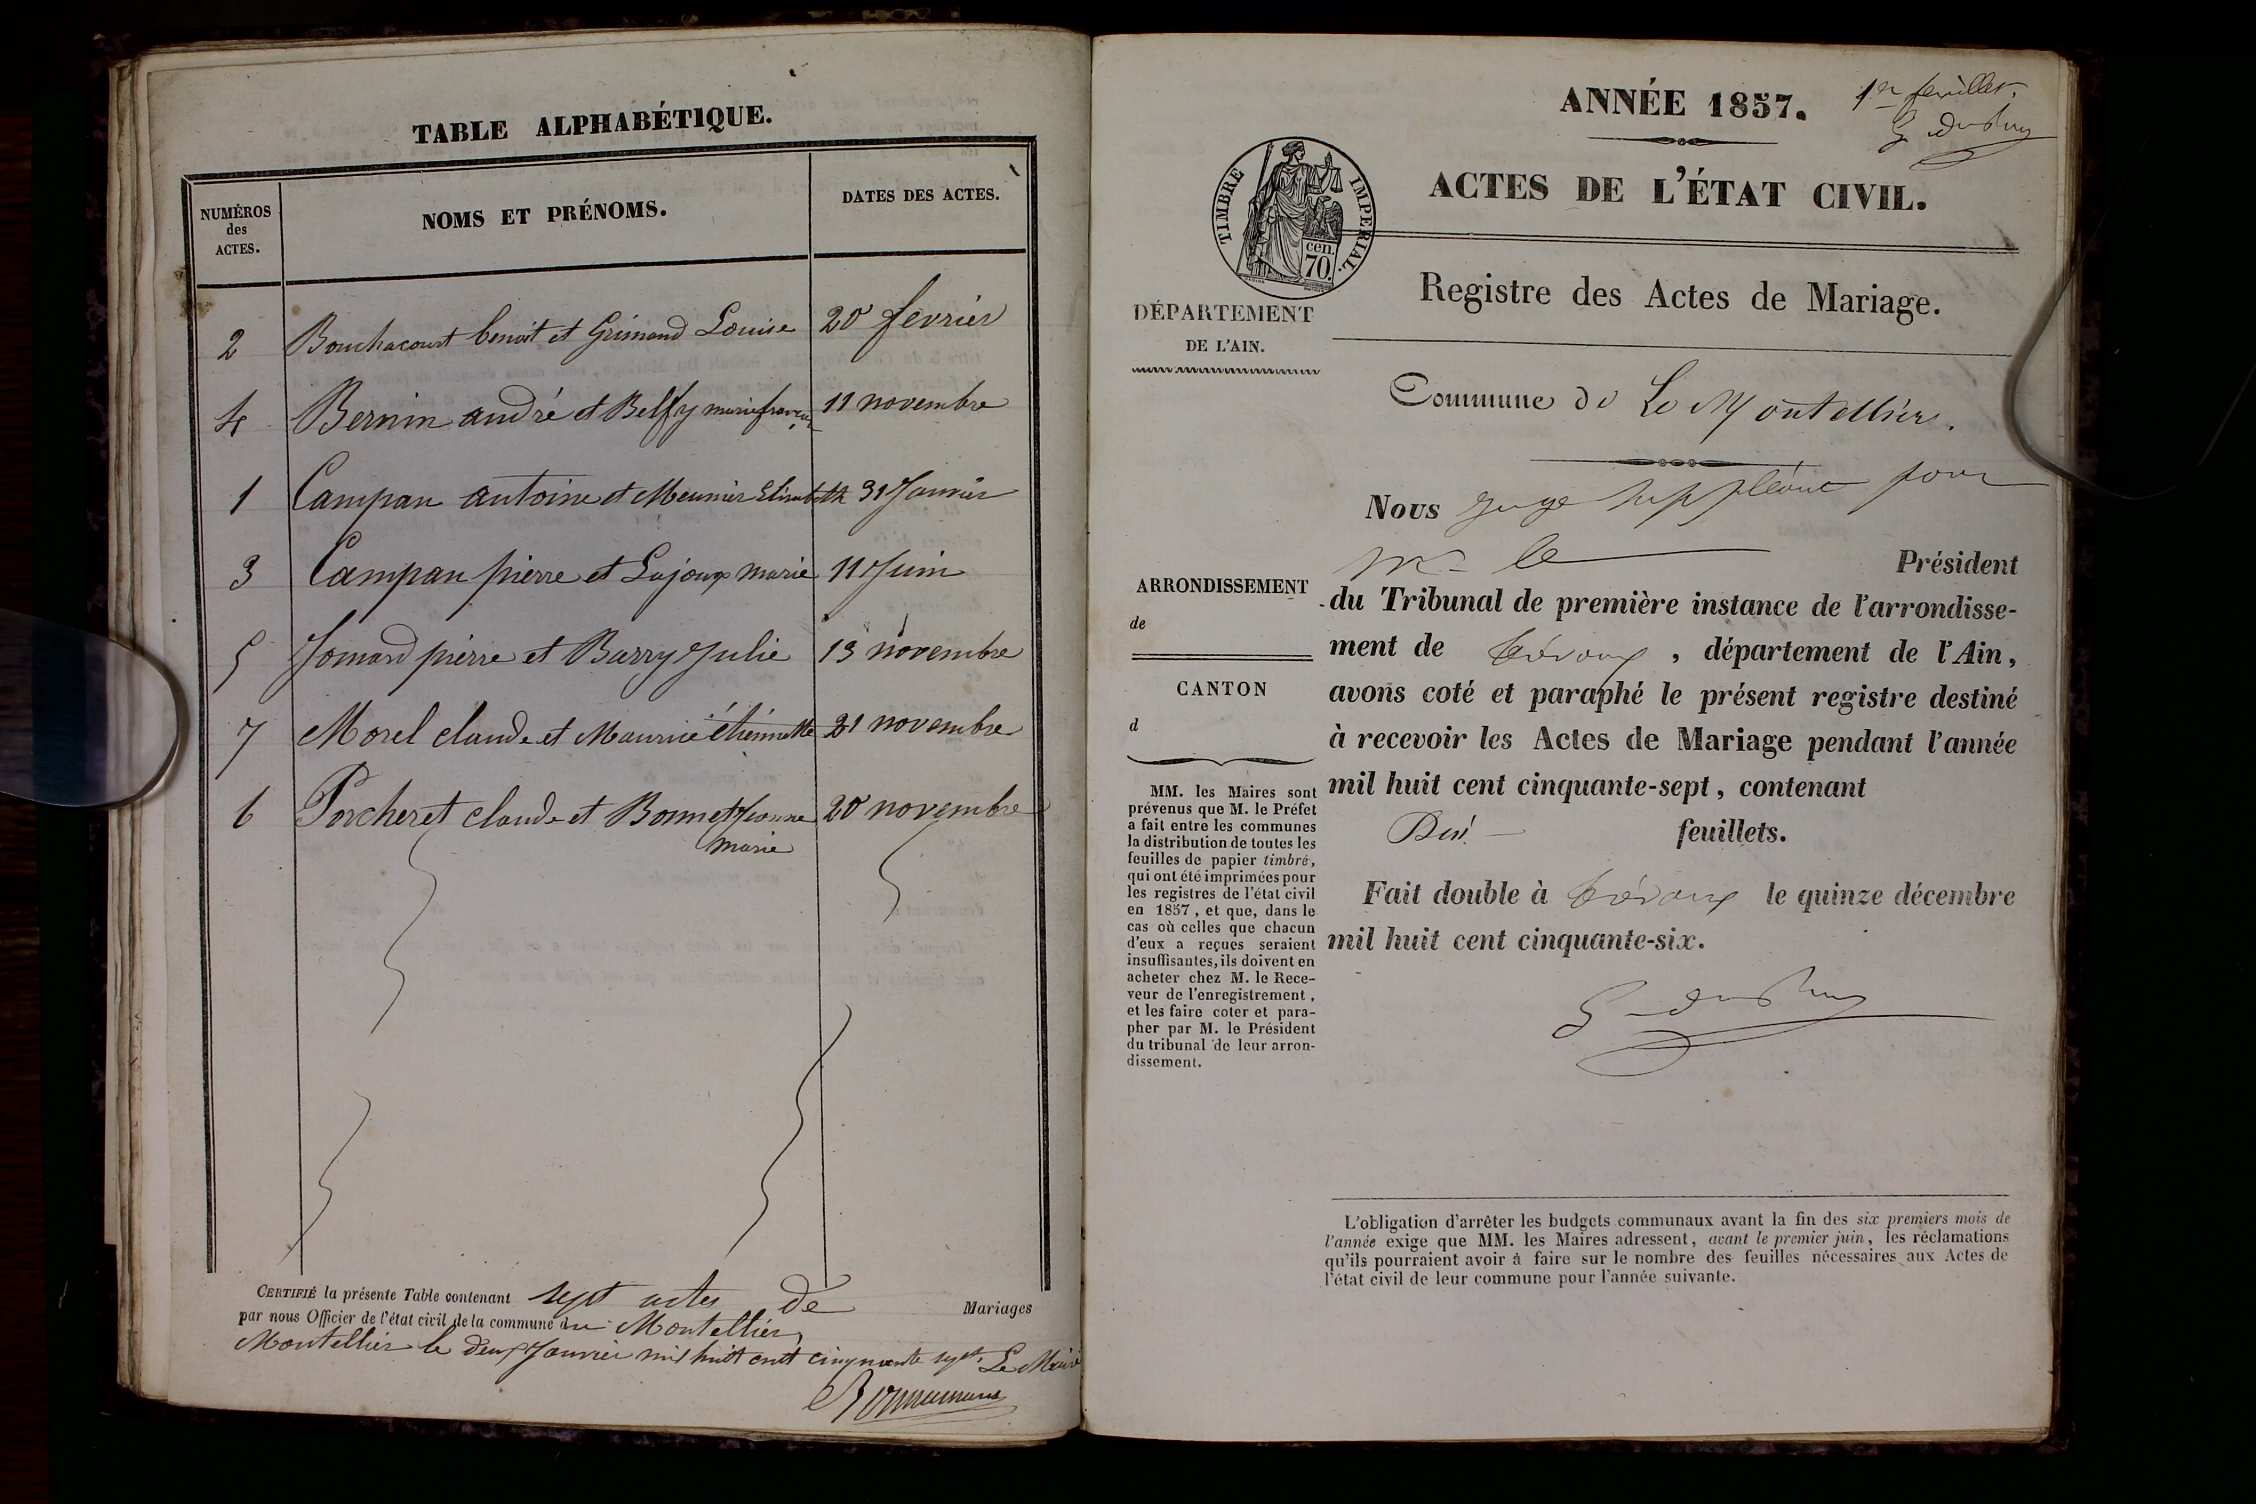 TABLE ALPHABÉTIQUE.
NUMÉROS des ACTES.
NOMS ET PRÉNOMS.
DATES DES ACTES.
2 Bouchacourt benoit et Grimand Louise 20 février
4 Bernin andré et Belfy marie françoise 11 novembre
1 Campan antoine et Meunier Elisabeth 31 Janvier
3 Campan pierre et Lajoux marie 11 Juin
5 Jomard pierre et Barry Julie 13 novembre
7 Morel claude et Maurice étiennette 21 novembre
6 Porcheret claude et Bonnet Jeanne 20 novembre
marie
CERTIFIÉ la présente Table contenant sept actes de Mariages
par nous Officier de l'état civil de la commune du Montellier,
Montellier le deux Janvier mil huit cent cinquante sept. Le Maire
ANNÉE 1857.
1er feuillet.
ACTES DE L'ÉTAT CIVIL.
TIMBRE IMPERIAL.
cen.
70.
Registre des Actes de Mariage.
DÉPARTEMENT
DE L'AIN.
Commune de Le Montellier.
Nous Juge suppléant pour
Mr le Président
du Tribunal de première instance de l'arrondisse-
ment de Trévoux, département de l'Ain,
avons coté et paraphé le présent registre destiné
à recevoir les Actes de Mariage pendant l'année
mil huit cent cinquante-sept, contenant
feuillets.
Fait double à Trévoux le quinze décembre
mil huit cent cinquante-six.
ARRONDISSEMENT
de
CANTON
d
MM. les Maires sont
prévenus que M. le Préfet
a fait entre les communes
la distribution de toutes les
feuilles de papier timbré,
qui ont été imprimées pour
les registres de l'état civil
en 1857, et que, dans le
cas où celles que chacun
d'eux a reçues seraient
insuffisantes, ils doivent en
acheter chez M. le Rece-
veur de l'enregistrement,
et les faire coter et para-
pher par M. le Président
du tribunal de leur arron-
dissement.
L'obligation d'arrêter les budgets communaux avant la fin des six premiers mois de
l'année exige que MM. les Maires adressent, avant le premier juin, les réclamations
qu'ils pourraient avoir à faire sur le nombre des feuilles nécessaires aux Actes de
l'état civil de leur commune pour l'année suivante.